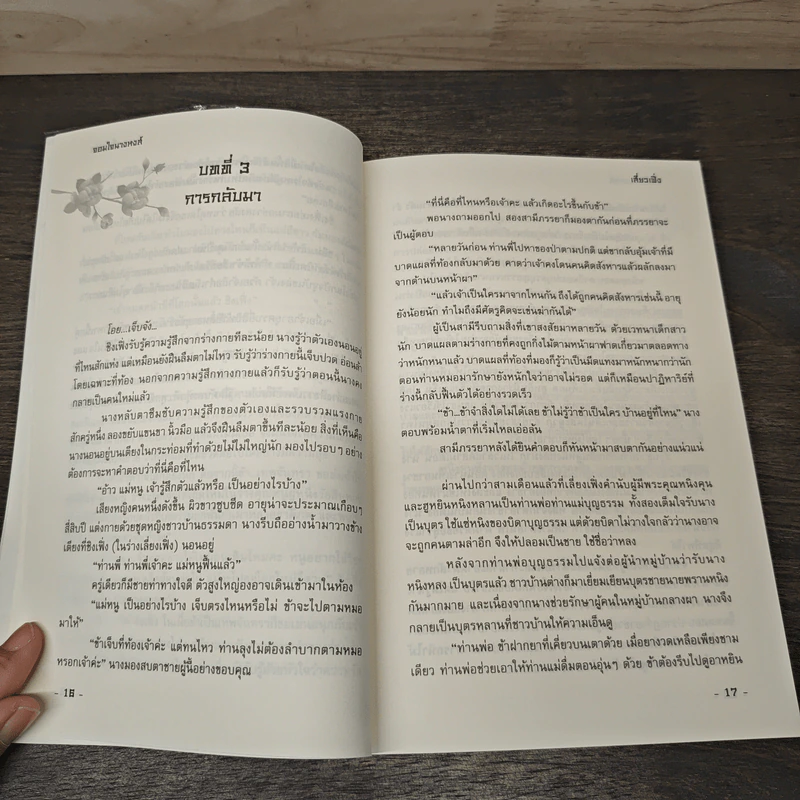 ยอมใจนางหงส์
บทที่ 3
การกลับมา
โอย...เจ็บจัง...
ชิงเฟิ่งรับรู้ความรู้สึกจากร่างกายทีละน้อย นางรู้ว่าตัวเองนอนอยู่
ที่ไหนสักแห่ง แต่เหมือนยังฝืนลืมตาไม่ไหว รับรู้ว่าร่างกายนี้เจ็บปวด อ่อนล้า
โดยเฉพาะที่ท้อง นอกจากความรู้สึกทางกายแล้วก็รับรู้ว่าตอนนี้นางคง
กลายเป็นคนใหม่แล้ว
นางหลับตาซึมซับความรู้สึกของตัวเองและรวบรวมแรงกาย
สักครู่หนึ่ง ลองขยับแขนขา นิ้วมือ แล้วจึงฝืนลืมตาขึ้นทีละน้อย สิ่งที่เห็นคือ
นางนอนอยู่บนเตียงในกระท่อมที่ทำด้วยไม้ไม่ใหญ่นัก มองไปรอบๆ อย่าง
ต้องการจะหาคำตอบว่าที่นี่คือที่ไหน
“อ้าว แม่หนู เจ้ารู้สึกตัวแล้วหรือ เป็นอย่างไรบ้าง”
เสียงหญิงคนหนึ่งดังขึ้น ผิวขาวซูบซีด อายุน่าจะประมาณเกือบๆ
สี่สิบปี แต่งกายด้วยชุดหญิงชาวบ้านธรรมดา นางรีบถืออ่างน้ำมาวางข้าง
เตียงที่ชิงเฟิ่ง (ในร่างเลี่ยงเฟิ่ง) นอนอยู่
“ท่านพี่ ท่านพี่เจ้าคะ แม่หนูฟื้นแล้ว”
ครู่เดียวก็มีชายท่าทางใจดี ตัวสูงใหญ่องอาจเดินเข้ามาในห้อง
“แม่หนู เป็นอย่างไรบ้าง เจ็บตรงไหนหรือไม่ ข้าจะไปตามหมอ
มาให้”
“ข้าเจ็บที่ท้องเจ้าค่ะ แต่ทนไหว ท่านลุงไม่ต้องลำบากตามหมอ
หรอกเจ้าค่ะ” นางมองสบตาชายผู้นี้อย่างขอบคุณ
- 16 -
เสี่ยวเฟิ่ง
“ที่นี่คือที่ไหนหรือเจ้าคะ แล้วเกิดอะไรขึ้นกับข้า”
พอนางถามออกไป สองสามีภรรยาก็มองตากันก่อนที่ภรรยาจะ
เป็นผู้ตอบ
“หลายวันก่อน ท่านพี่ไปหาของป่าตามปกติ แต่ขากลับอุ้มเจ้าที่มี
บาดแผลที่ท้องกลับมาด้วย คาดว่าเจ้าคงโดนคนคิดสังหารแล้วผลักลงมา
จากด้านบนหน้าผา”
“แล้วเจ้าเป็นใครมาจากไหนกัน ถึงได้ถูกคนคิดสังหารเช่นนี้ อายุ
ยังน้อยนัก ทำไมถึงมีศัตรูคิดจะเข่นฆ่ากันได้”
ผู้เป็นสามีรีบถามสิ่งที่เขาสงสัยมาหลายวัน ด้วยเวทนาเด็กสาว
นัก บาดแผลตามร่างกายที่คงถูกกิ่งไม้ตามหน้าผาฟาดเกี่ยวมาตลอดทาง
ว่าหนักหนาแล้ว บาดแผลที่ท้องที่มองก็รู้ว่าเป็นมีดแทงมาหนักหนากว่านัก
ตอนท่านหมอมารักษายังหนักใจว่าอาจไม่รอด แต่ก็เหมือนปาฏิหาริย์ที่
ร่างนี้กลับฟื้นตัวได้อย่างรวดเร็ว
“ข้า...ข้าจำสิ่งใดไม่ได้เลย ข้าไม่รู้ว่าข้าเป็นใคร บ้านอยู่ที่ไหน” นาง
ตอบพร้อมน้ำตาที่เริ่มไหลเอ่อล้น
สามีภรรยาหลังได้ยินคำตอบก็หันหน้ามาสบตากันอย่างแน่วแน่
ผ่านไปกว่าสามเดือนแล้วที่เลี่ยงเฟิ่งคำนับผู้มีพระคุณหนิงคุน
และฮูหยินหนิงหลานเป็นท่านพ่อท่านแม่บุญธรรม ทั้งสองเต็มใจรับนาง
เป็นบุตร ใช้แซ่หนิงของบิดาบุญธรรม แต่ด้วยบิดาไม่วางใจกลัวว่านางอาจ
จะถูกคนตามล่าอีก จึงให้ปลอมเป็นชาย ใช้ชื่อว่าหลง
หลังจากท่านพ่อบุญธรรมไปแจ้งต่อผู้นำหมู่บ้านว่ารับนาง
หนิงหลง เป็นบุตรแล้ว ชาวบ้านต่างก็มาเยี่ยมเยียนบุตรชายนายพรานหนิง
กันมากมาย และเนื่องจากนางช่วยรักษาผู้คนในหมู่บ้านกลางผา นางจึง
กลายเป็นบุตรหลานที่ชาวบ้านให้ความเอ็นดู
“ท่านพ่อ ข้าฝากยาที่เคี่ยวบนเตาด้วย เมื่อยางวดเหลือเพียงชาม
เดียว ท่านพ่อช่วยเอาให้ท่านแม่ดื่มตอนอุ่นๆ ด้วย ข้าต้องรีบไปดูอาหยิน
- 17 -